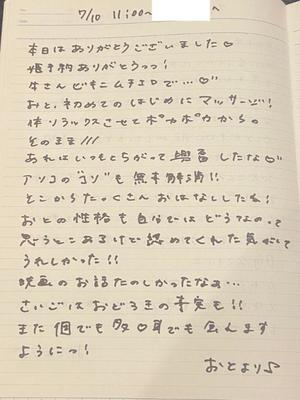 7/10 11:00〜
本日はありがとうございました♡
姫予約ありがとうっ!
牛さんビキニムチエロで…♡"
おと、初めてのはじめにマッサージ!
体リラックスさせてポカポカから。
そのまま///
あれはいつもとちがって興奮したな♡"
アソコの"コリ"も無事解消!!
そこからたっくさんおはなししたね!
おとの性格も自分ではどうなの。って
思うとこあるけど認めてくれた気がして
うれしかった!!
映画のお話たのしかったなぁ…
さいごはおどろきの事実も!!
また個でも多♡耳でも会えます
ようにっ!
おとより♪